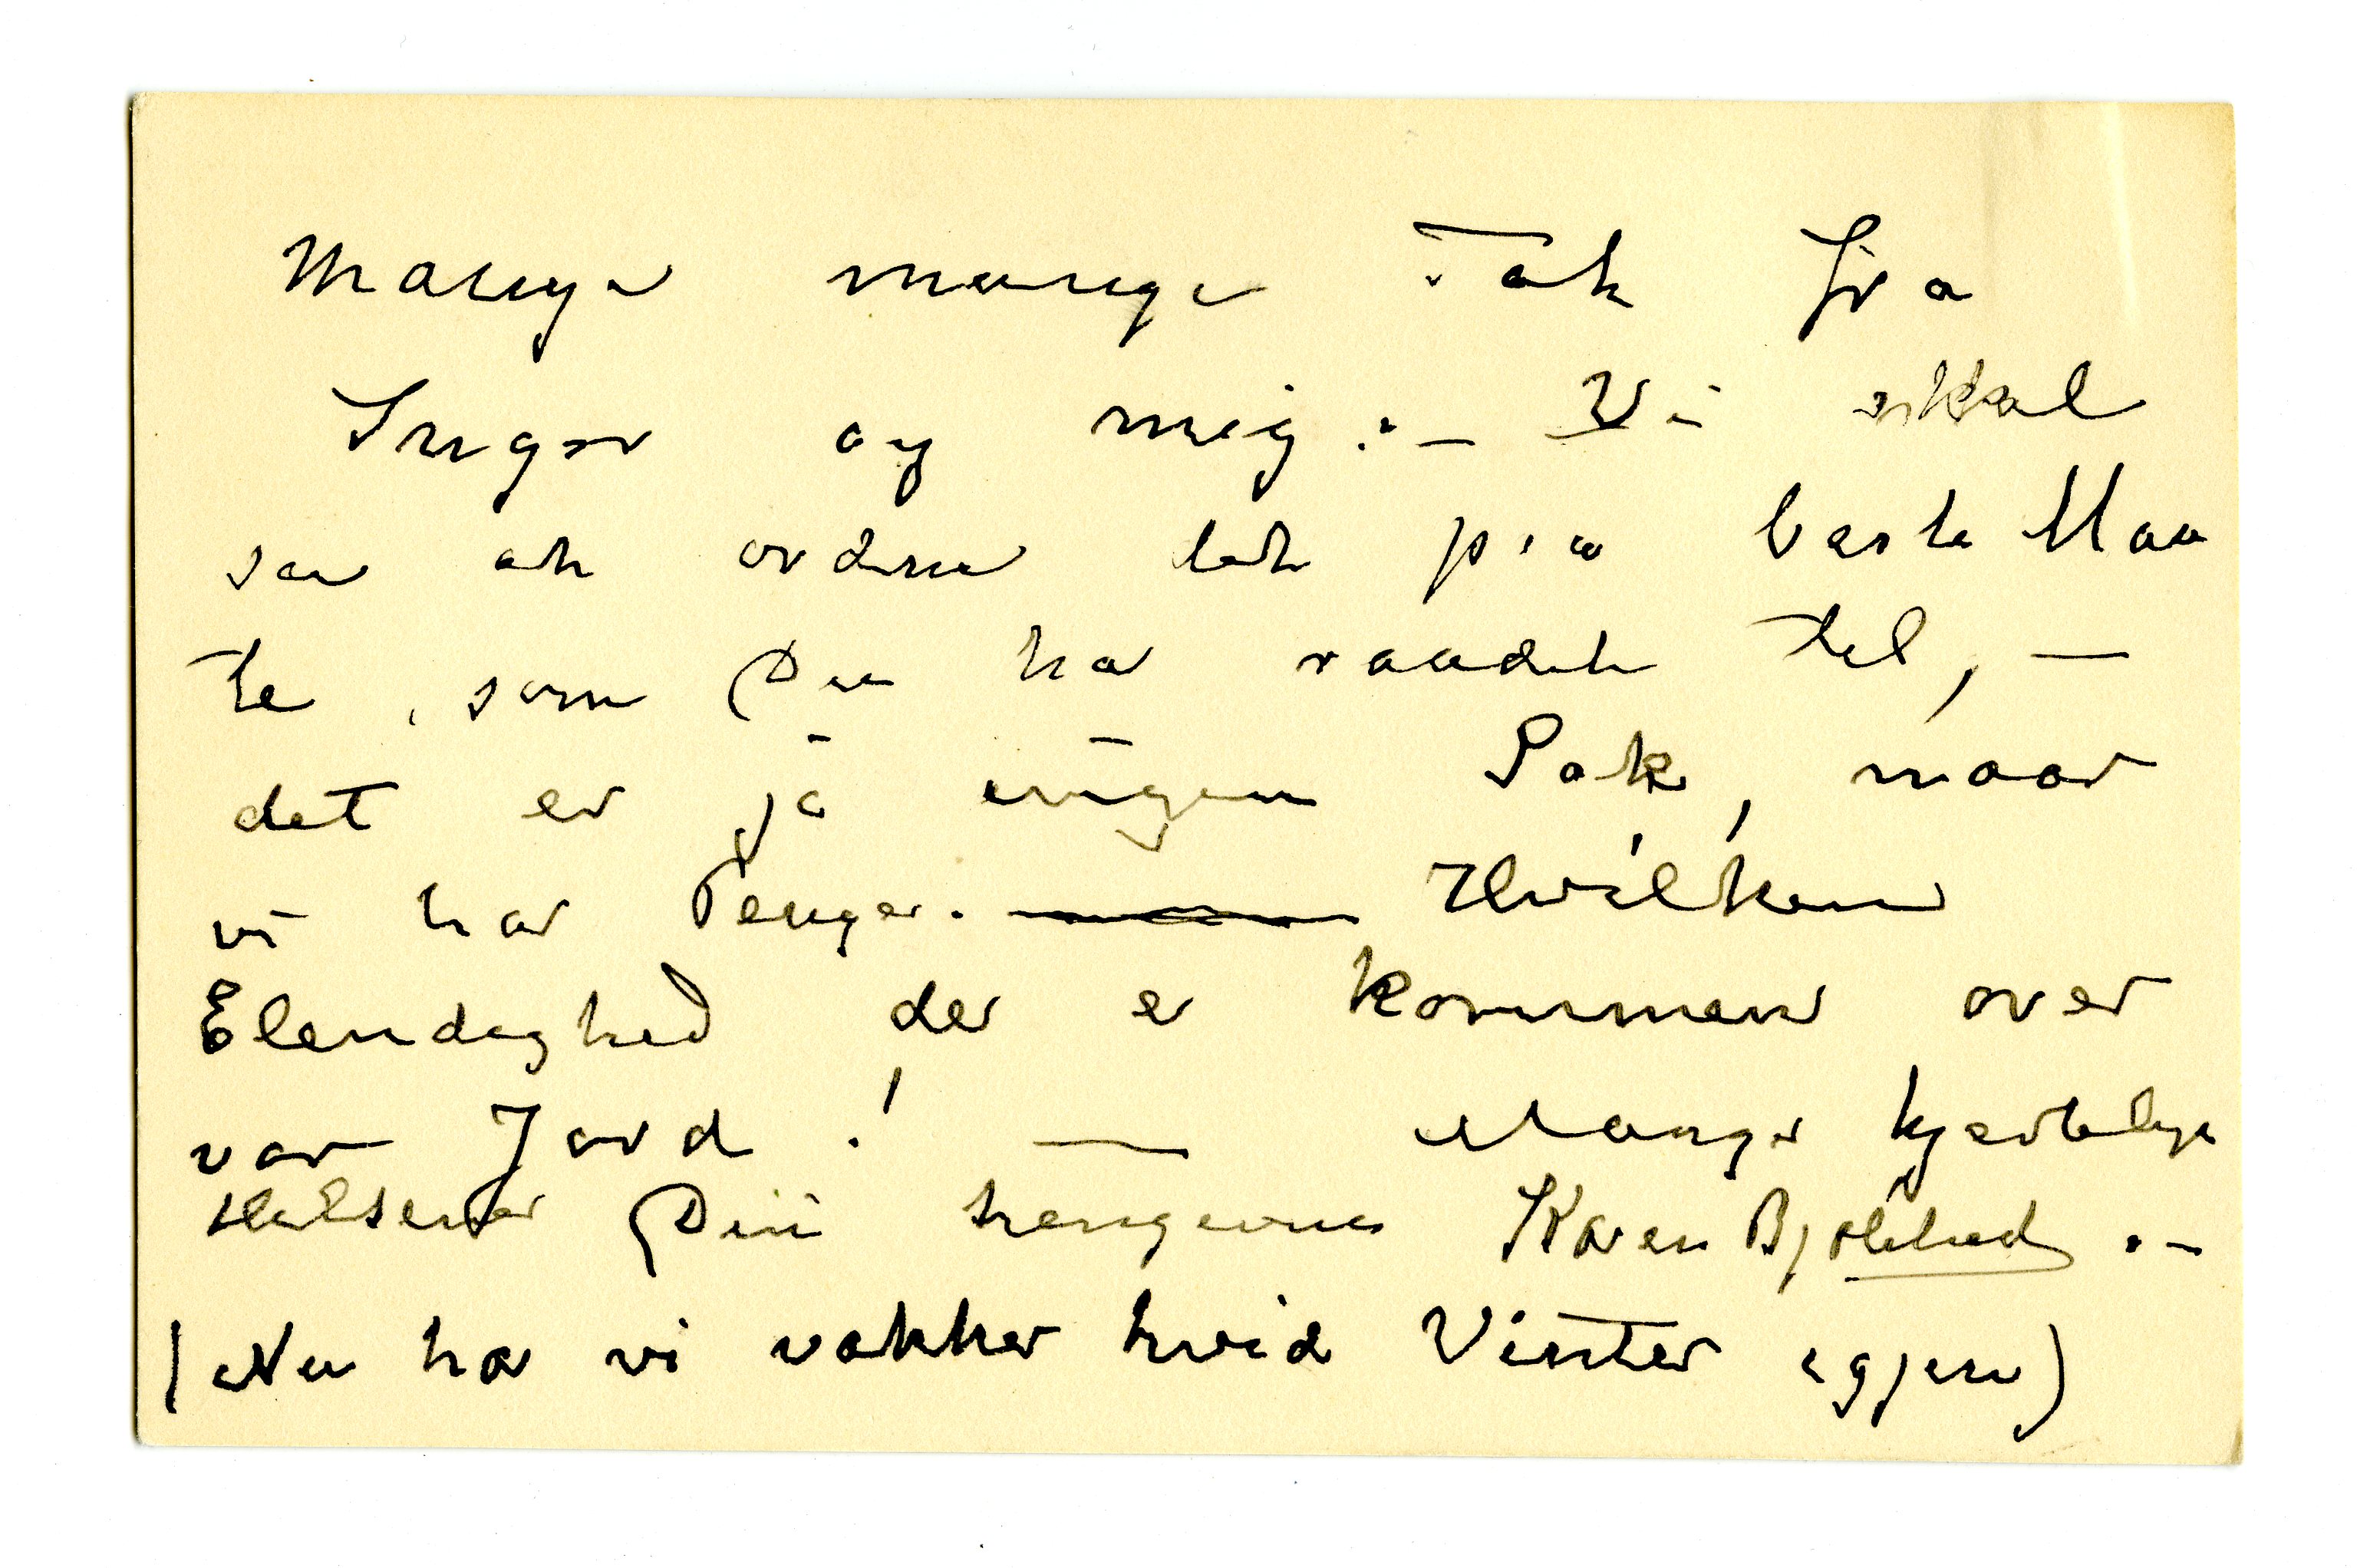 Mange mange Tak fra
Inger og mig.- Vi skal
se at ordne det paa beste Maa
te, som Du har raadet til, —
det er ja ingen Sak, naar
vi har Penger. Hvilken
Elendighed der er kommen over
vor Jord! — Mange hjertelige
Hilsener Din hengivne Karen Bjølstad.-
(Nu har vi vakker hvid Vinter igjen)